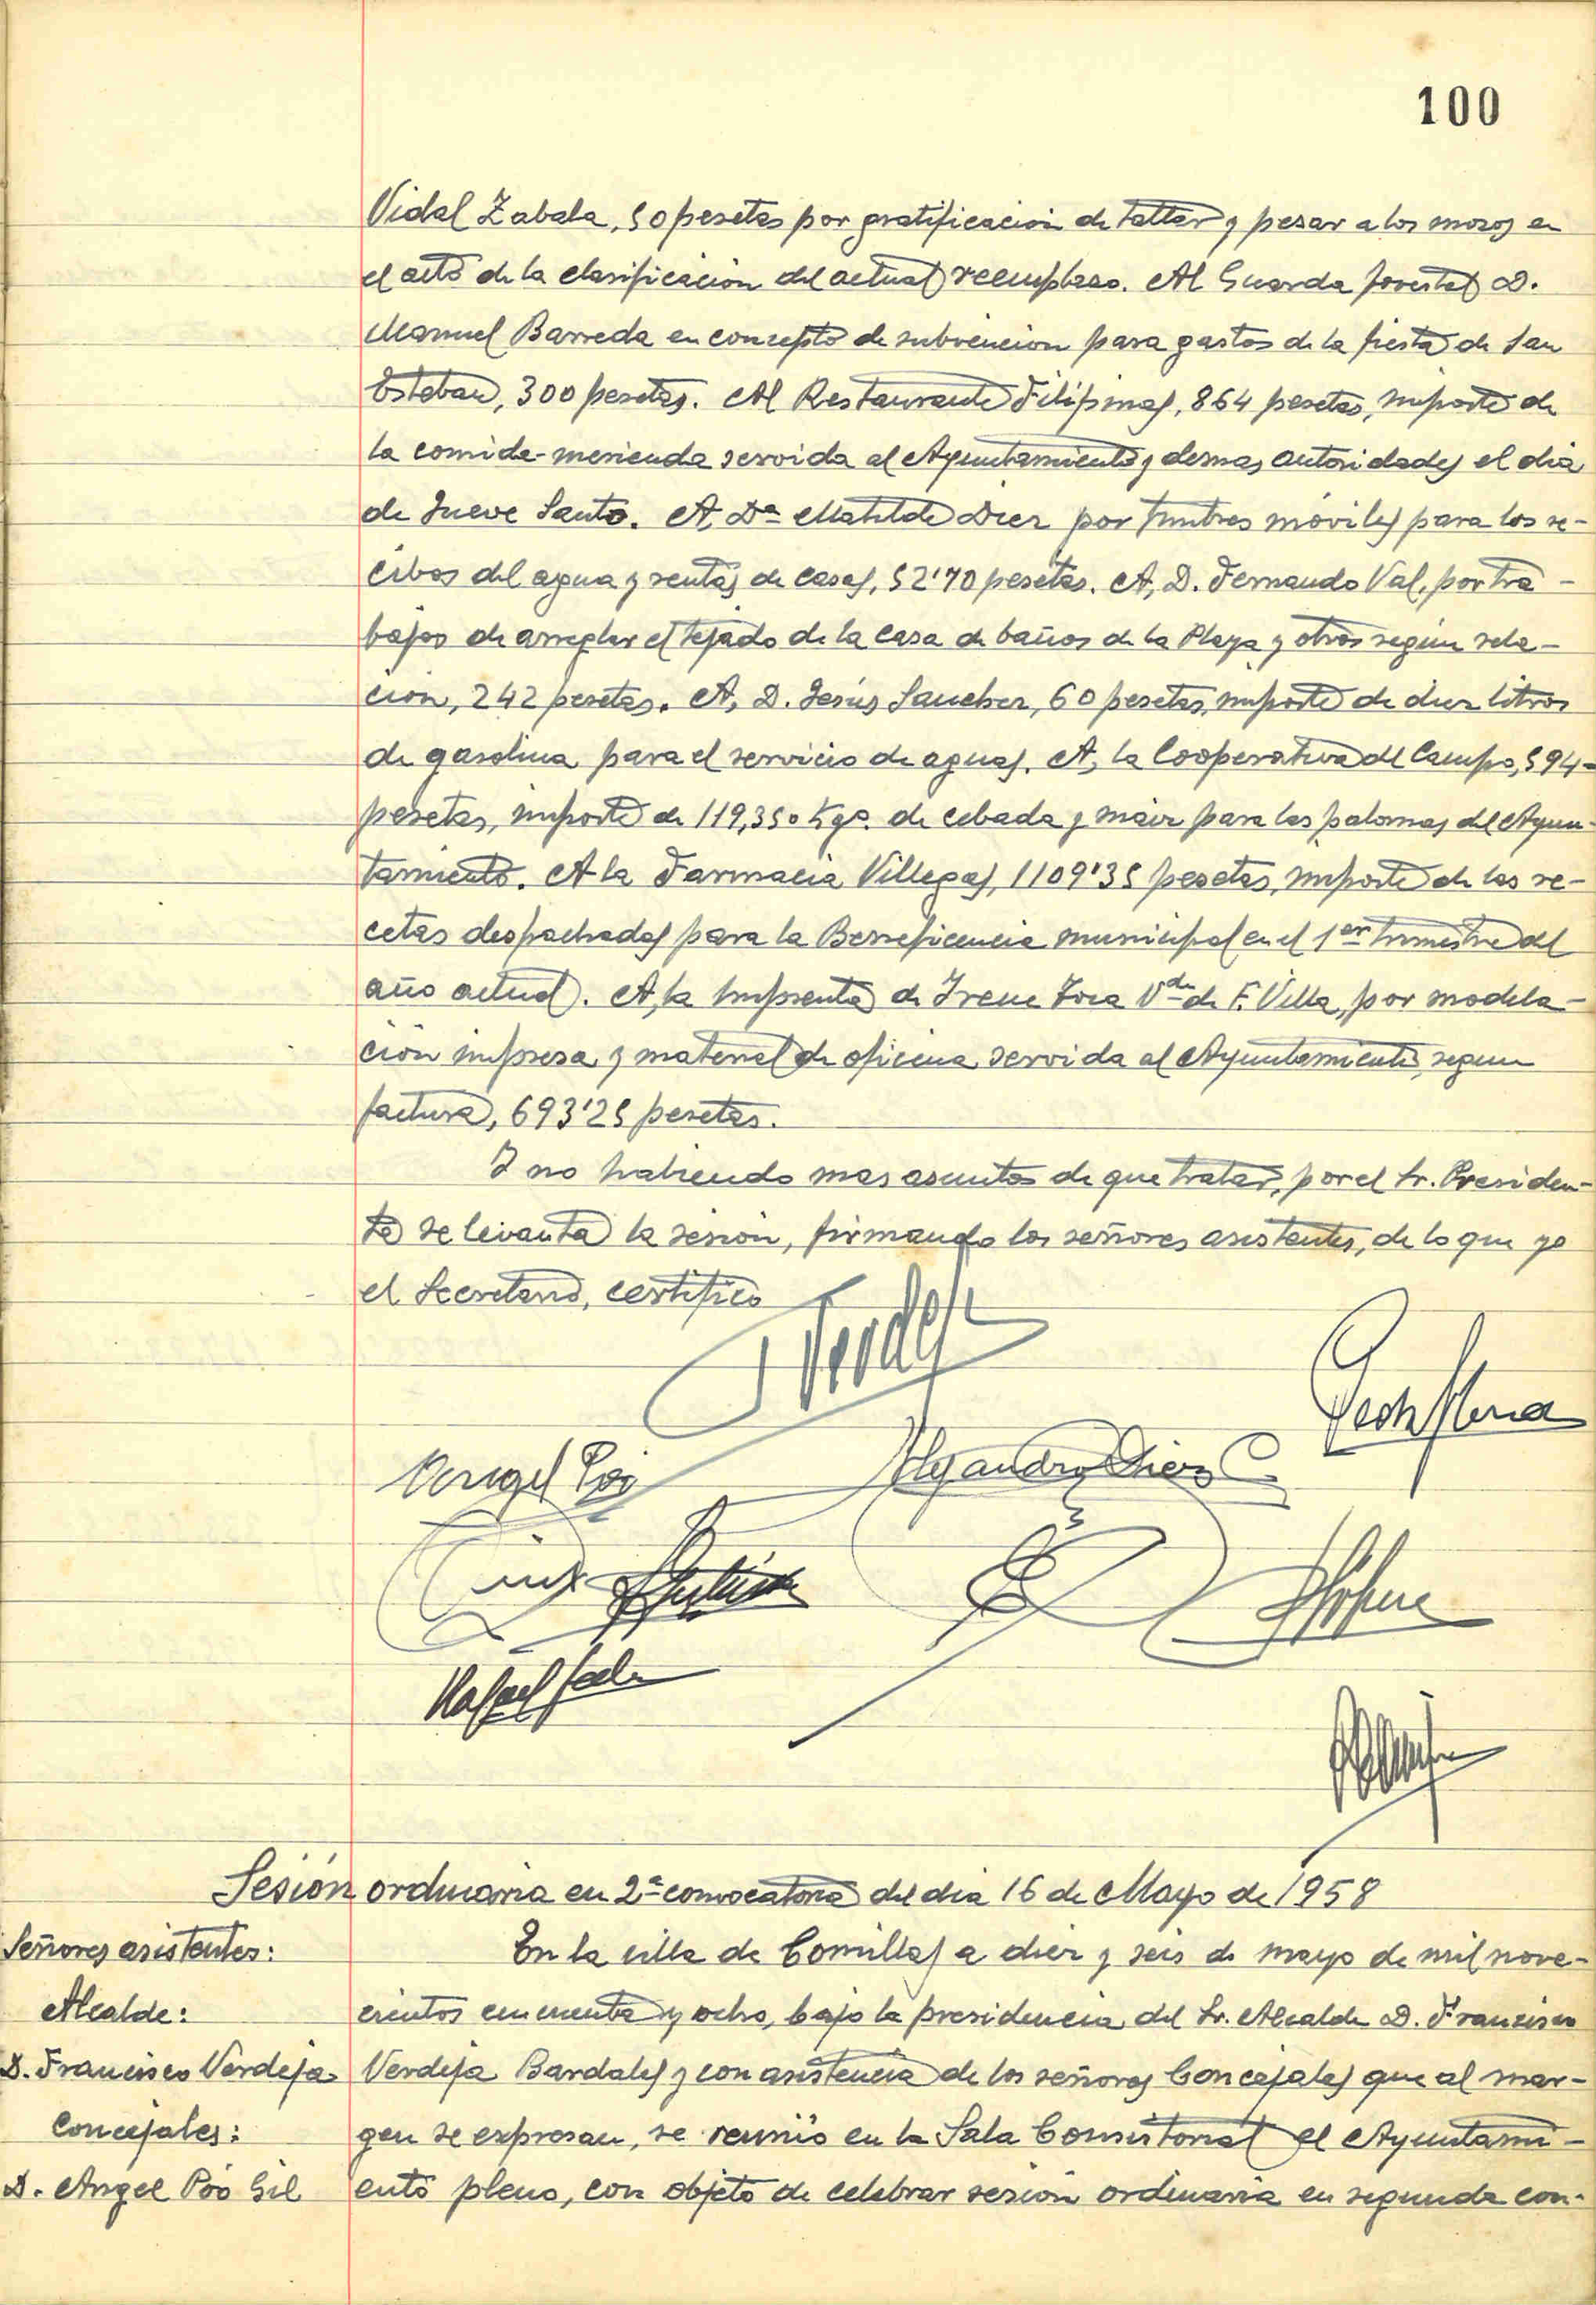 100
Vidal Zabala, 50 pesetas por gratificacion de tallar y pesar a los mozos en
el acto de la clasificación del actual reemplazo. Al Guarda forestal D.
Manuel Barreda en concepto de subvencion para gastos de la fiesta de San
Esteban, 300 pesetas. Al Restaurante Filipinas, 864 pesetas, importe de
la comida-merienda servida al Ayuntamiento y demas autoridades el dia
de Jueve Santo. A Dª Matilde Diez por timbres móviles para los re-
cibos del agua y rentas de casas, 52'70 pesetas. A, D. Fernando Val, por tra-
bajos de arreglar el tejado de la casa de baños de la Playa y otros según rela-
ción, 242 pesetas. A, D. Jesús Sanchez, 60 pesetas, importe de diez litros
de gasolina para el servicio de aguas. A, la Cooperativa del Campo, 594-
pesetas, importe de 119,350 Kgs. de cebada y maiz para las palomas del Ayun-
tamiento. A la Farmacia Villegas, 1109'35 pesetas, importe de las re-
cetas despachadas para la Beneficencia municipal en el 1er trimestre del
año actual. A, la Imprenta de Irene Vda de F. Villa, por modela-
ción impresa y material de oficina servida al Ayuntamiento, segun
factura, 693'25 pesetas.
Y no habiendo mas asuntos de que tratar, por el Sr. Presiden-
te se levanta la sesion, firmando los señores asistentes, de lo que yo
el Secretario, certifico
Angel Poo
Alejandro Diez C.
Rafael
Sesión ordinaria en 2ª convocatoria del dia 16 de Mayo de 1958
Señores asistentes:
Alcalde:
D. Francisco Verdeja
Concejales:
D. Angel Poo Gil
En la villa de Comillas a diez y seis de mayo de mil nove-
cientos cincuenta y ocho, bajo la presidencia del Sr. Alcalde D. Francisco
Verdeja Bardales y con asistencia de los señores Concejales que al mar-
gen se expresan, se reunió en la Sala Consistorial el Ayuntami-
ento pleno, con objeto de celebrar sesion ordinaria en segunda con-